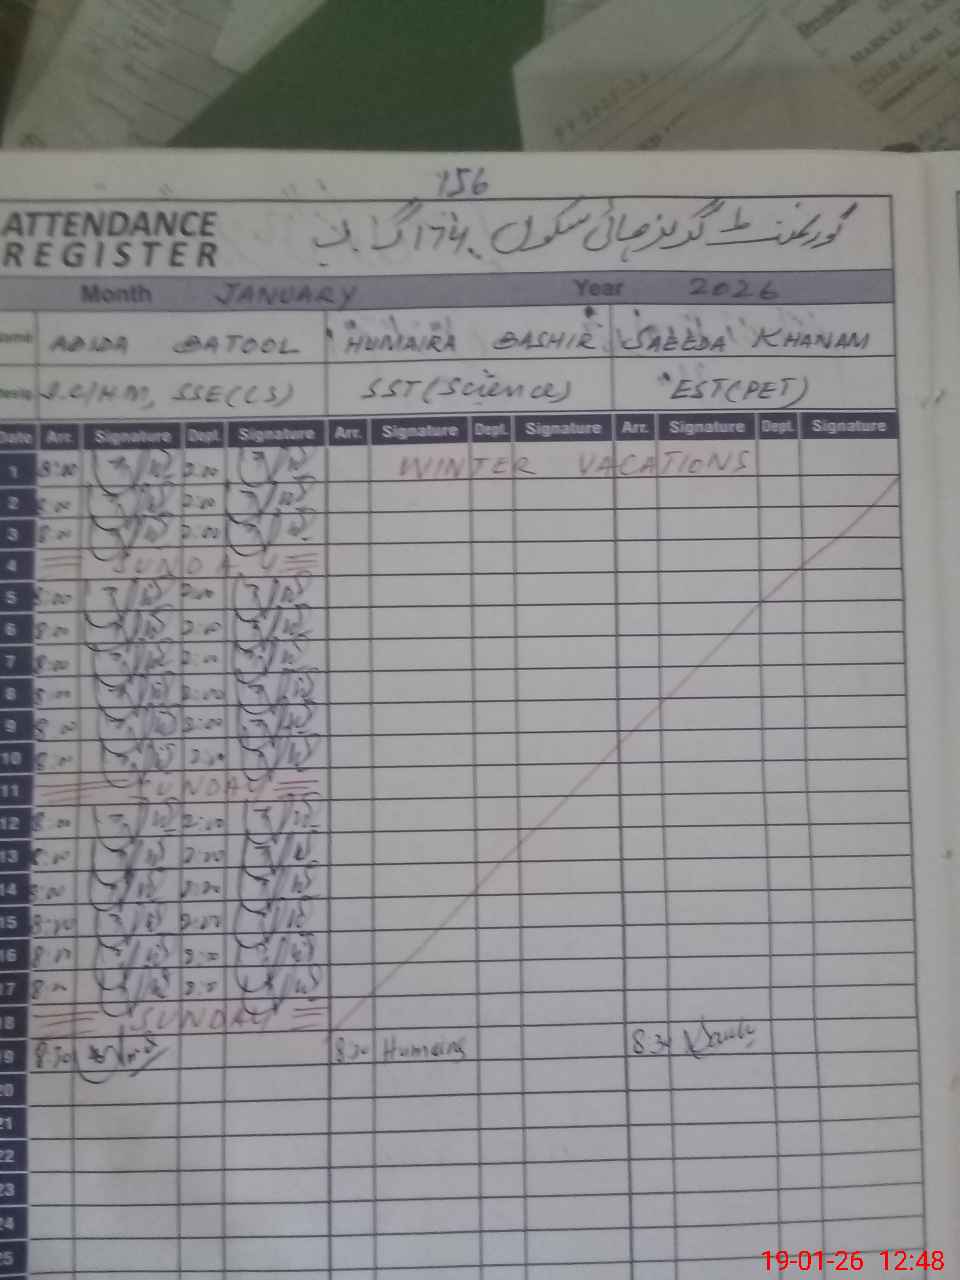 156
ATTENDANCE
REGISTER
گورنمنٹ گرلز ہائی سکول 174 گ ب
Month JANUARY Year 2026
ABIDA BATOOL HUMAIRA BASHIR SAEEDA KHANAM
I.C/H.M, SSE(CS) SST(Science) EST(PET)
Date Arr. Signature Dept. Signature Arr. Signature Dept. Signature Arr. Signature Dept. Signature
1 8:00 2:00 WINTER VACATIONS
2 8:00 2:00
3 8:00 2:00
4 SUNDAY
5 8:00 2:00
6 8:00 2:00
7 8:00 2:00
8 8:00 2:00
9 8:00 2:00
10 8:00 2:00
11 SUNDAY
12 8:00 2:00
13 8:00 2:00
14 8:00 2:00
15 8:00 2:00
16 8:00 2:00
17 8:00 2:00
18 SUNDAY
19 8:30 8:30 Humaira 8:30
20
21
22
23
24
25
19-01-26 12:48